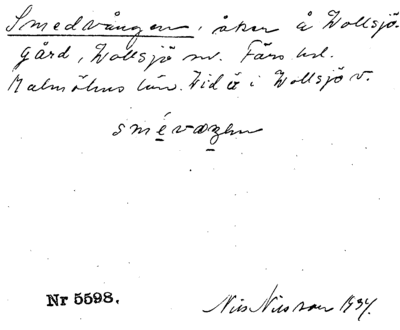 Smedvången, åker å Vollsjö-
gård, Vollsjö sn. Färs hd.
Malmöhus län. Vid å i Vollsjö v.
smévaꭓen
Nr 5598.
Nils Nilsson 1934.